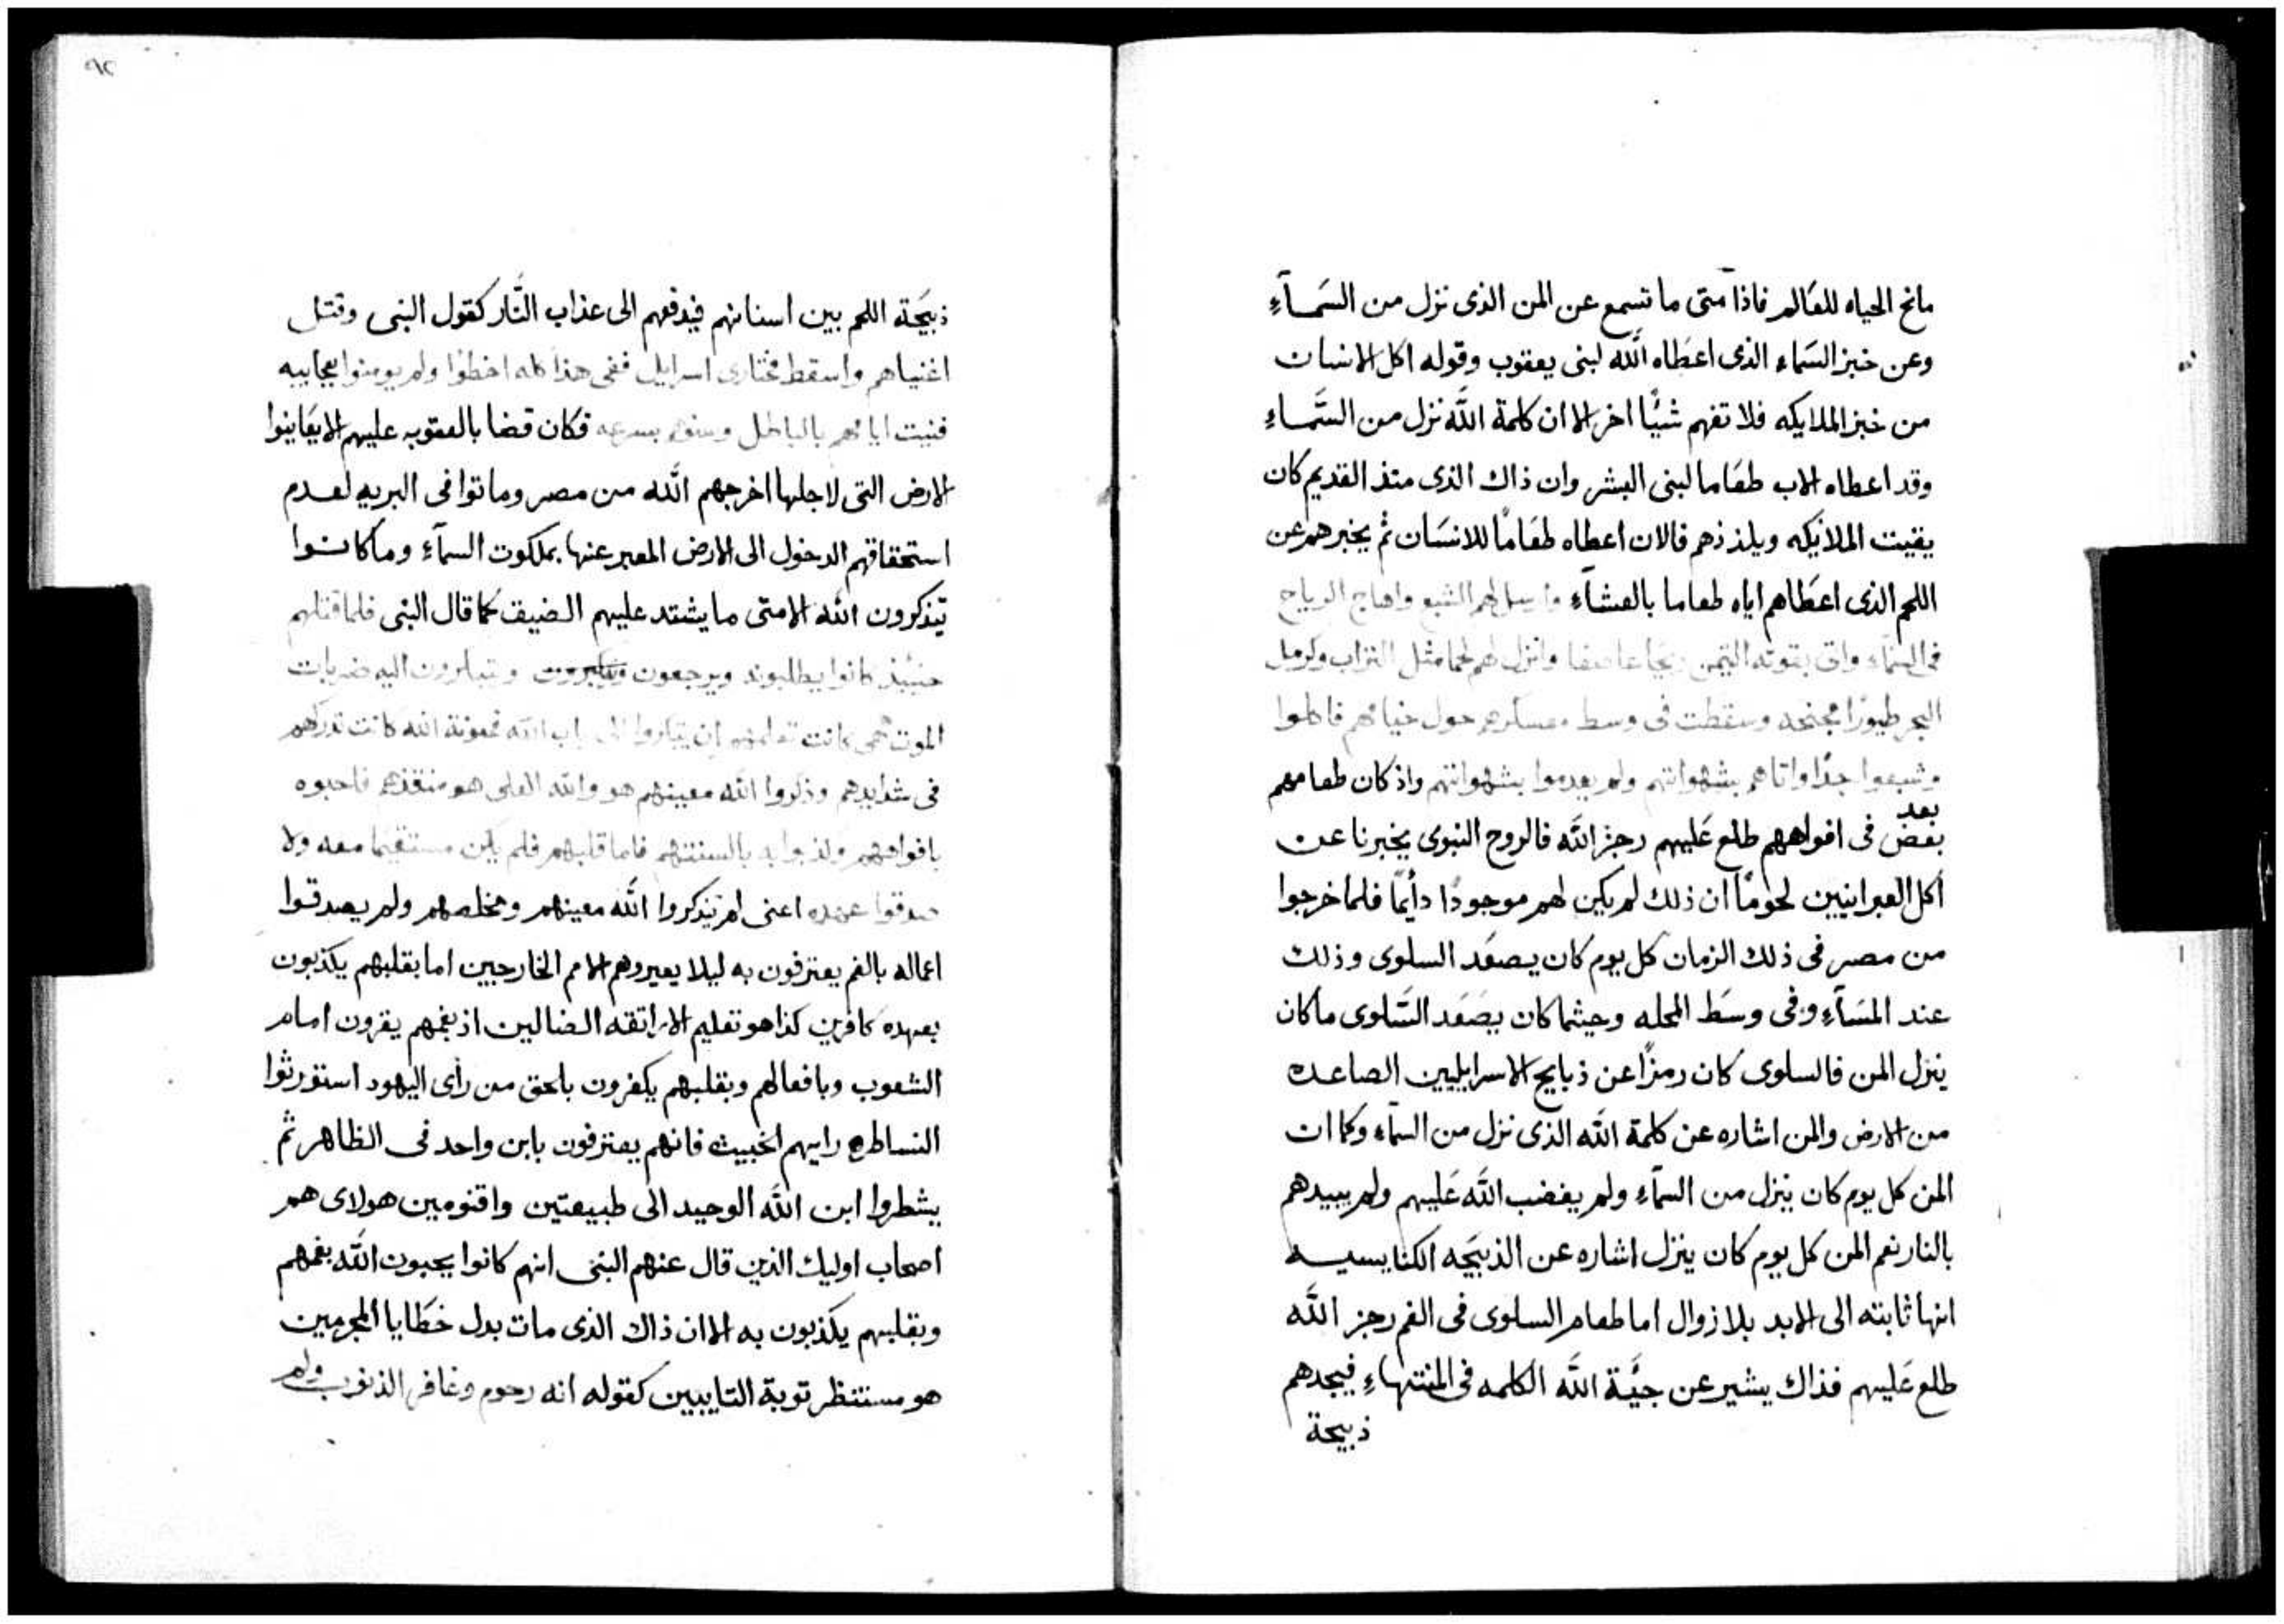 مانح الحياه للعالم فاذا متى ما تسمع عن المن الذى نزل من السَمآءِ
وعن خبز السَماء الذى اعطاه الله لبنى يعقوب وقوله اكل الانسان
من خبز الملايكه فلا تفهم شيًا اخر الا ان كلمة اللَّه نزل من السَّماءِ
وقد اعطاه الاب طعَاما لبنى البشر وان ذاك الذى منذ القديم كان
يقيت الملايكه ويلذذهم فالان اعطاه طعَامًا للانسَان ثم يخبرهم عن
اللحم الذى اعطَاهم اياه طعاما بالعشآء وارسل لهم الشبع واهاج الرياح
فى السَمآء واتى بقوته التيمن ريحًا عاصفا وانزل لهم لحما مثل التراب وكرمل
البحر طيورًا مجنحه وسقطت فى وسط معسكرهم حول خيامهم فاكلوا
وشبعوا جدًا واتاهم بشهواتهم ولم يعدموا بشهواتهم واذ كان طعامهم
بعد
بغض فى افواههم طلع عَليهم رجز اللَّه فالروح النبوى يخبرنا عن
أكل العبرانيين لحومًا ان ذلك لم يكن لهم موجودًا دأيمًا فلما خرجوا
من مصر فى ذلك الزمان كل يوم كان يصعَد السلوى وذلك
عند المسَآءِ وفى وسَط المحله وحيثما كان يصَعَد السَّلوى ما كان
ينزل المن فالسلوى كان رمزًا عن ذبايح الاسرايليين الصاعده
من الارض والمن اشاره عن كلمة اللَّه الذى نزل من السمآء وكما ان
المن كل يوم كان ينزل من السمآءِ ولم يغضب اللَّه عَليهم ولم يبيدهم
بالنار نعم المن كل يوم كان ينزل اشاره عن الذبيَحه الكنايسيه
انها ثابته الى الابد بلا زوال اما طعام السلوى فى الفم رجز اللَّه
طلع عَليهم فذاك يشير عن جيَّة اللَّه الكلمه فى المنتهاءِ فيجدهم
ذبيحة
٩٢
ذبيَحَة اللحم بين اسنانهم فيدفعهم الى عذاب النَّار كقول النبى وقتل
اغنياهم واسقط مختارى اسرايل ففى هذا كله اخطوا ولم يومنوا بعجايبه
فنيت ايامهم بالباطل وسنوهم بسرعه فكان قضا بالعقوبه عليهم الا يعَاينوا
الارض التى لاجلها اخرجهم اللَّه من مصر وماتوا فى البريه لعدم
استحقاقهم الدخول الى الارض المعبر عنها بملكوت السمآءِ وما كانوا
يتذكرون اللَّه الا متى ما يشتد عليهم الضيق كما قال النبى فلما قتلهم
حينيذ كانوا يطلبونه ويرجعون ويبتكرون اليه ضربات
الموت هى كانت تعلمهم ان يبتكروا الى باب اللَّه فمعونة الله كانت تدركهم
فى شدايدهم وذكروا اللَّه معينهم هو واللَّه العلى هو منقذهم فاحبوه
بافواههم وكذبوا به بالسنتهم فاما قلبهم فلم يكن مستقيما معه ولا
صدقوا عهده اعنى لم يتذكروا اللَّه معينهم ومخلصهم ولم يصدقوا
اعماله بالفم يعترفون به ليلا يعيروهم الامم الخارجيين اما بقلبهم يكذبون
بعهده كافرين كذا هو تعليم الاراتقه الضالين اذ بفمهم يقرون امام
الشعوب وبافعالهم وبقلبهم يكفرون بالحق من رأى اليهود استورثوا
النساطره رايهم الخبيث فانهم يعترفون بابن واحد فى الظاهر ثم
يشطروا ابن اللَّه الوحيد الى طبيعتين واقنومين هولاى هم
اصحاب اوليك الذين قال عنهم النبى انهم كانوا يحبون اللَّه بفمهم
وبقلبهم يكذبون به الا ان ذاك الذى مات بدل خطَايا المجرمين
هو مستنظر توبة التايبين كقوله انه رحوم وغافر الذنوب ولم